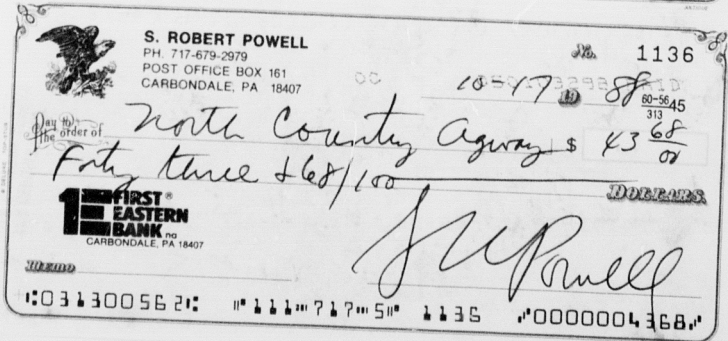 S. ROBERT POWELL
PH. 717-679-2979
POST OFFICE BOX 161
CARBONDALE, PA 18407
No. 1136
10-17 19 88
60-5645
313
Pay to the order of North Country Agway $ 43 68/00
Forty three & 68/100 DOLLARS
1E FIRST EASTERN BANK na
CARBONDALE, PA 18407
MEMO
S R Powell
⑆031300562⑆ ⑈111⑉717⑉5⑈ 1136 ⑇0000004368⑇